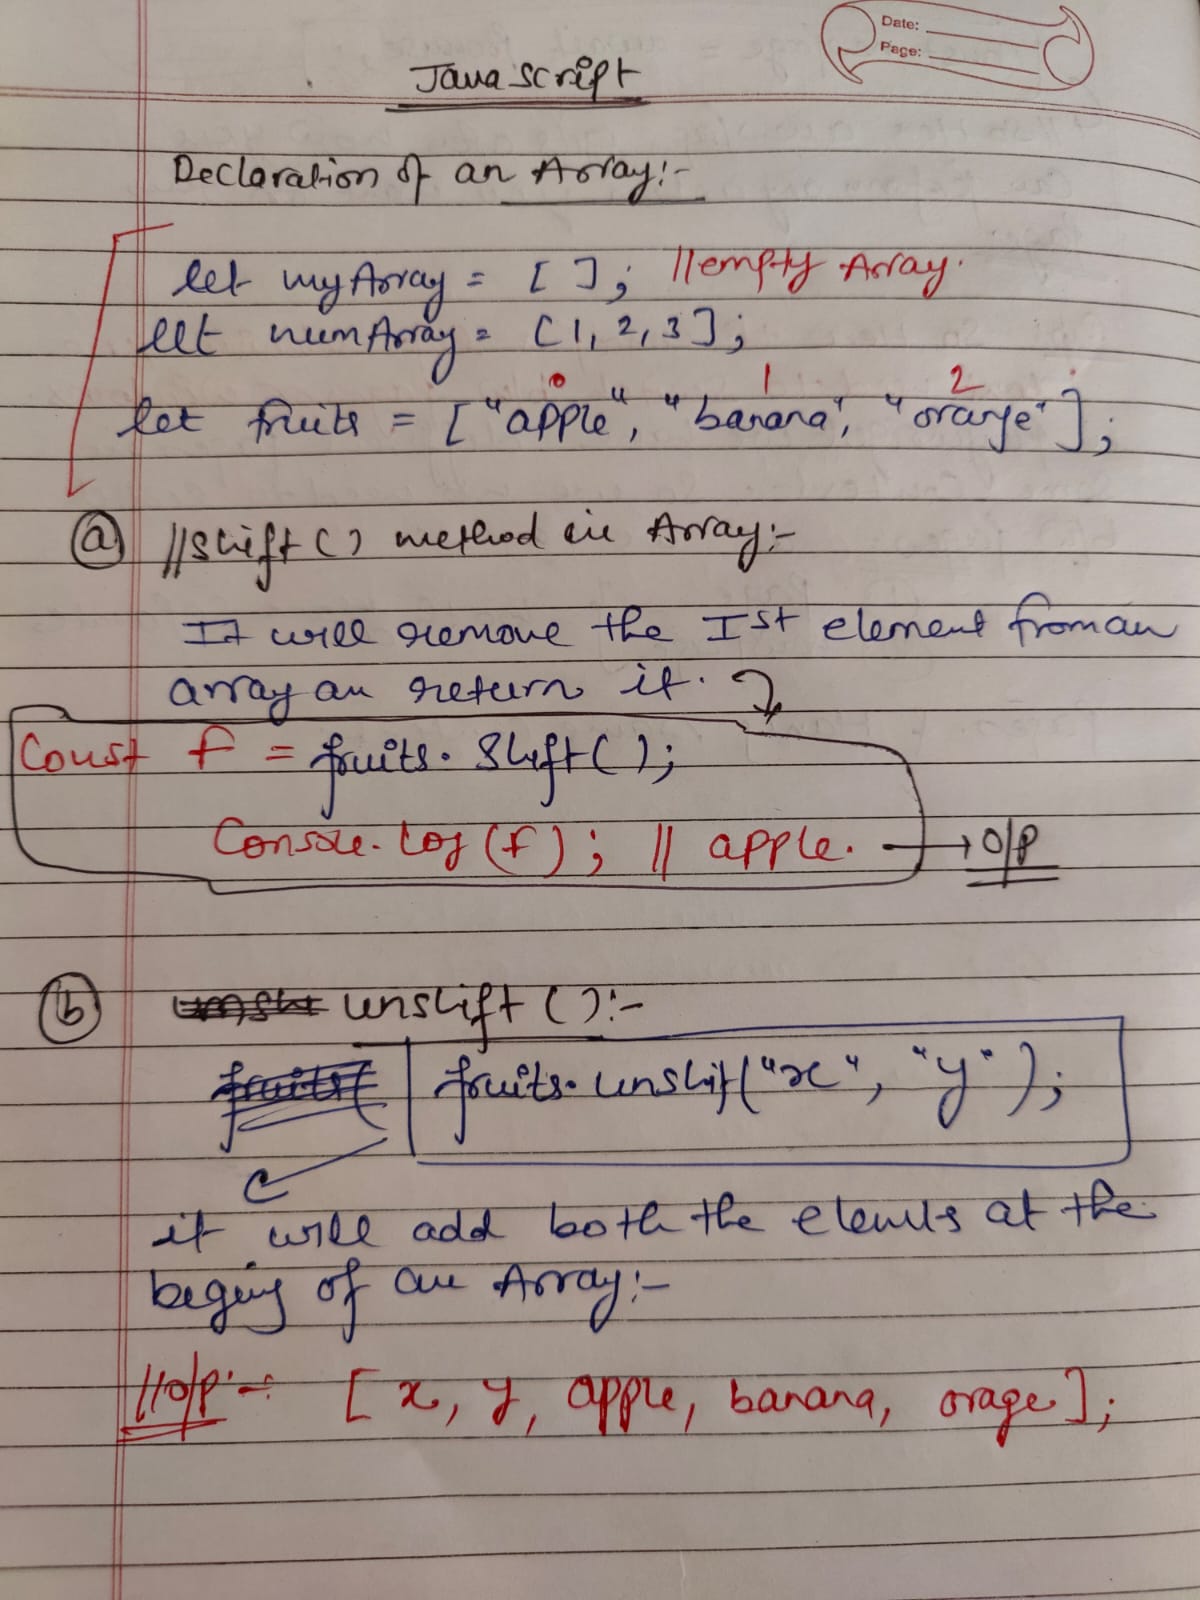 Date:
Page:
JavaScript
Declaration of an Array:-
let myArray = [ ]; //empty Array.
let numArray = [1, 2, 3];
0 1 2
let fruits = ["apple", "banana", "orange"];
(a) //Shift() method in Array:-
It will remove the Ist element from an
array an return it.
Const f = fruits. Shift();
Console.log(f); // apple. → O/P
(b) unshift():-
fruits. unshift("x", "y");
it will add both the elemnts at the
beging of an Array:-
//O/P:- [x, y, apple, banana, orage];